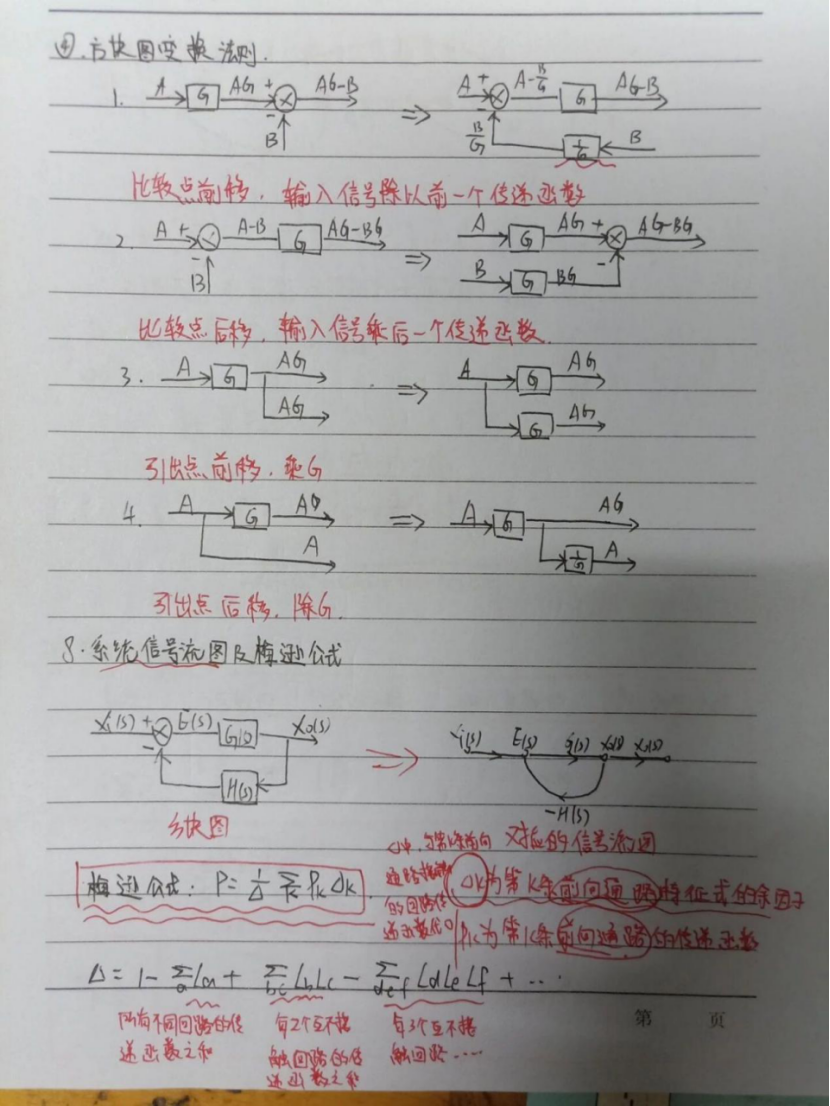 四.方块图变换法则.
1. A G AG + - AG-B B ⇒ A + - A-B/G G AG-B B/G 1/G B
比较点前移,输入信号除以前一个传递函数
2. A + - A-B G AG-BG B ⇒ A G AG + - AG-BG B G BG
比较点后移,输入信号乘后一个传递函数.
3. A G AG AG ⇒ A G AG G AG
引出点前移.乘G
4. A G AG A ⇒ A G AG 1/G A
引出点后移,除G.
8.系统信号流图及梅逊公式
Xi(s) + - E(s) G(s) Xo(s) H(s) ⇒ Xi(s) E(s) G(s) Xo(s) Xo(s) -H(s)
方块图
对应的信号流图
梅逊公式: P=1/Δ ∑k Pk Δk
Δk为第k条前向通路特征式的余因子
Δ中,与第k条前向
通路接触
的回路传
递函数代0
Pk为第k条前向通路的传递函数
Δ= 1- ∑a La + ∑bc LbLc - ∑def LdLeLf + …
所有不同回路的传
递函数之和
每2个互不接
触回路的传
递函数之和
每3个互不接
触回路……
第 页